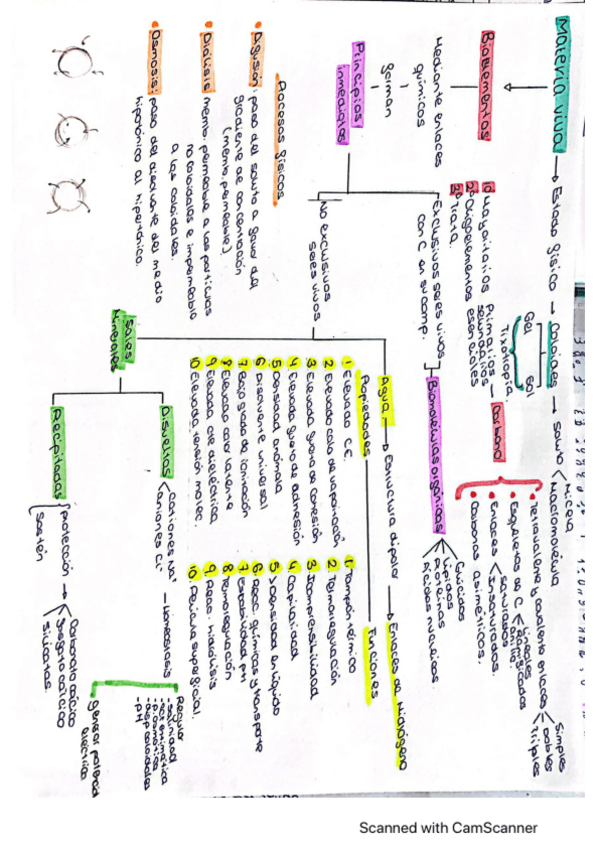 Materia viva → Estado físico → Coloides → soluto < Micela
Macromolécula
Gel Sol
Tixotropía
Bioelementos
1º Mayoritarios Primarios
secundarios
2º Oligoelementos esenciales
3º Traza.
Carbono
• Tetravalente y covalente enlaces < Simples
Dobles
Triples
• Esqueletos de C < lineales
ramificados
anillo
• Enlaces < saturados
Insaturados.
• Carbonos asimétricos.
Mediante enlaces
químicos
forman
Principios
inmediatos
Exclusivos seres vivos
con C en su comp.
Biomoléculas orgánicas
Glúcidos
Lípidos
Proteínas
Ácidos nucleicos
No exclusivos
seres vivos
Agua → Estructura dipolar → Enlaces de Hidrógeno
Propiedades
Funciones
1 Elevado C.E.
2 Elevado calor de vaporización
3 Elevada fuerza de cohesión
4 Elevada fuerza de adhesión
5 Densidad anómala
6 Disolvente universal
7 Bajo grado de ionización
8 Elevado calor latente
9 Elevada cte dieléctrica
10 Elevada tensión molec.
1. Tampón térmico
2. Termorregulación
3 Incompresibilidad
4 Capilaridad
5 >densidad en líquido
6 Reac. químicas y transporte
7 Estabilidad pH
8 Termorregulación
9 Reac. hidrólisis
10. Película superficial.
Procesos físicos
• Difusión: paso del soluto a favor del
gradiente de concentración
(memb. permeable)
• Diálisis: memb. permeable a las partículas
no coloidales e impermeable
a las coloidales.
• Osmosis: paso del disolvente del medio
hipotónico al hipertónico.
Sales
Minerales
Disueltas < cationes Na⁺
aniones Cl⁻
Homeostasis
Regular
- salinidad
- act. enzimática
- p. osmótica
- pH
generar potencial
eléctrico
Precipitadas
protección
sostén
Carbonato cálcico
fosfato cálcico
silicatos.
Scanned with CamScanner